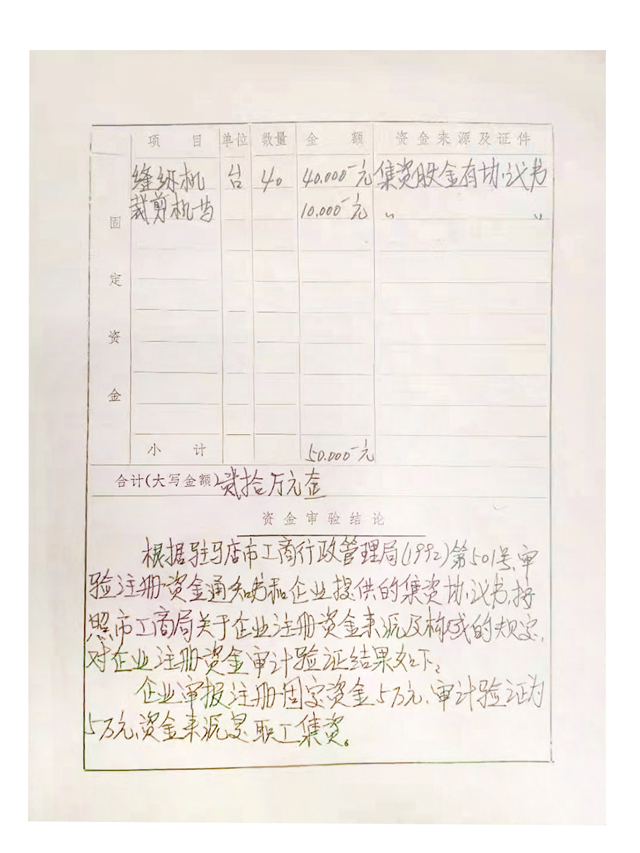 项 目 单位 数量 金 额 资金来源及证件
缝纫机 台 40 40.000-元 集资股金有协议书
裁剪机等 10.000-元 〃 〃
固定资金
小 计 50.000-元
合计(大写金额) 贰拾万元整
资金审验结论
根据驻马店市工商行政管理局(1992)第501号,审
验注册资金通知书和企业提供的集资协议书,按
照市工商局关于企业注册资金来源及构成的规定,
对企业注册资金审计验证结果如下:
企业申报注册固定资金5万元,审计验证为
5万元,资金来源是职工集资。